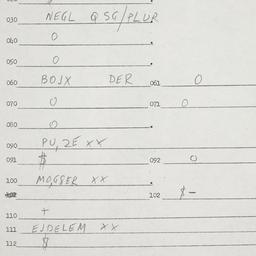 030 NEGL Q SG/PLUR
040 O
050 O
060 BOJX DER 061 O
070 O 071 O
080 O
090 PU,ZE XX
091 $ 092 O
100 MO,GSER XX
102 102 $-
110 +
111 EJDELEM XX
112 $